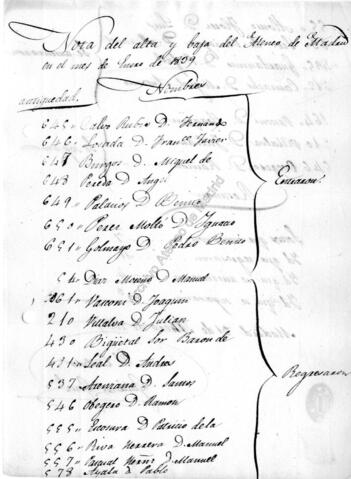 Nota del alta y baja del Ateneo de Madrid
en el mes de Enero de 1839
antiguedad. Nombres
645 Calvo Rubio D. Fernando
646 Losada D. Franco Javier
647 Burgos D. Miguel de
648 Pereda D. Angel
649 Palacios D.
650 Perez Moltó D. Ignacio
651 D. Pedro Benito
Entraron
54 Diaz Moreno D. Manuel
D. Joaquin
210 Villalva D. Julian
430 Bigüezal Sor Baron de
431 Leal D. Andres
537 D. Santos
546 D. Ramon
555 Escosura D. Patricio de la
556 Riva Herrera D. Manuel
557 Pascual D. Manuel
578 Ayala D. Pablo
Regresaron